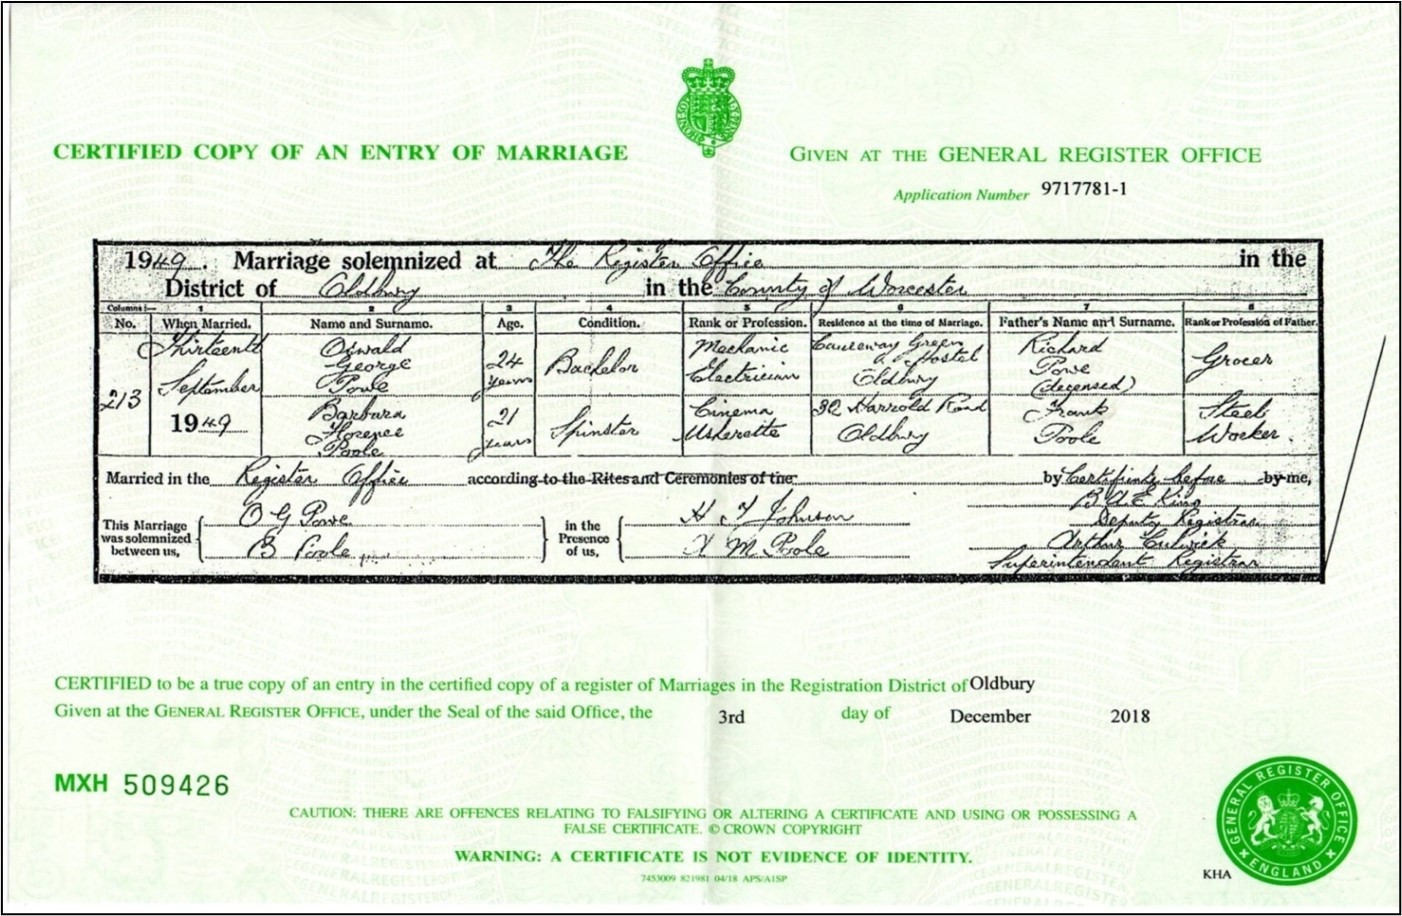 CERTIFIED COPY OF AN ENTRY OF MARRIAGE
GIVEN AT THE GENERAL REGISTER OFFICE
Application Number 9717781-1
1949. Marriage solemnized at The Register Office in the
District of Oldbury in the County of Worcester
Columns:— 1 2 3 4 5 6 7 8
No. When Married. Name and Surname. Age. Condition. Rank or Profession. Residence at the time of Marriage. Father's Name and Surname. Rank or Profession of Father.
213
Thirteenth
September
1949
Oswald
George
Powe
24
years
Bachelor
Mechanic
Electrician
Causeway Green
Hostel
Oldbury
Richard
Powe
(deceased)
Grocer
Barbara
Florence
Poole
21
years
Spinster
Cinema
Usherette
32 Harrold Road
Oldbury
Frank
Poole
Steel
Worker
Married in the Register Office according to the Rites and Ceremonies of the by Certificate before by me,
This Marriage
was solemnized
between us,
O G Powe
B Poole
in the
Presence
of us,
H T Johnson
M Poole
B A E King
Deputy Registrar
Arthur Culwick
Superintendent Registrar
CERTIFIED to be a true copy of an entry in the certified copy of a register of Marriages in the Registration District of Oldbury
Given at the GENERAL REGISTER OFFICE, under the Seal of the said Office, the 3rd day of December 2018
MXH 509426
CAUTION: THERE ARE OFFENCES RELATING TO FALSIFYING OR ALTERING A CERTIFICATE AND USING OR POSSESSING A
FALSE CERTIFICATE. © CROWN COPYRIGHT
WARNING: A CERTIFICATE IS NOT EVIDENCE OF IDENTITY.
7453009 821981 04/18 APS/A1SP
KHA
GENERAL REGISTER OFFICE
ENGLAND